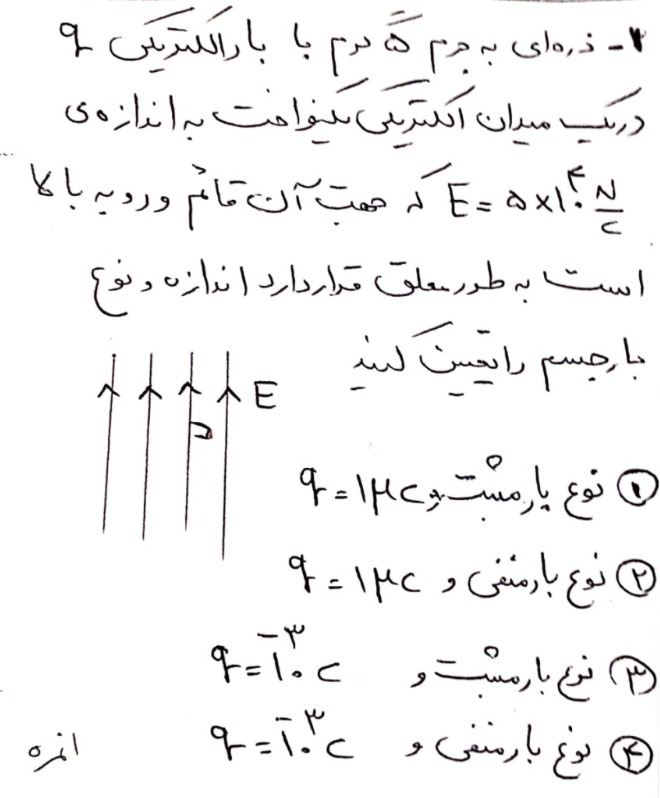 ۲- ذره‌ای به جرم ۵ گرم با بار الکتریکی q
در یک میدان الکتریکی یکنواخت به اندازه‌ی
E = ۵×۱۰^۴ N/C که جهت آن قائم و رو به بالا
است به طور معلق قرار دارد اندازه و نوع
بار جسم را تعیین کنید
E
① نوع بار مثبت و q = ۱μc
② نوع بار منفی و q = ۱μc
③ نوع بار مثبت و q = ۱۰^-۳ c
④ نوع بار منفی و q = ۱۰^-۳ c
۱نمره